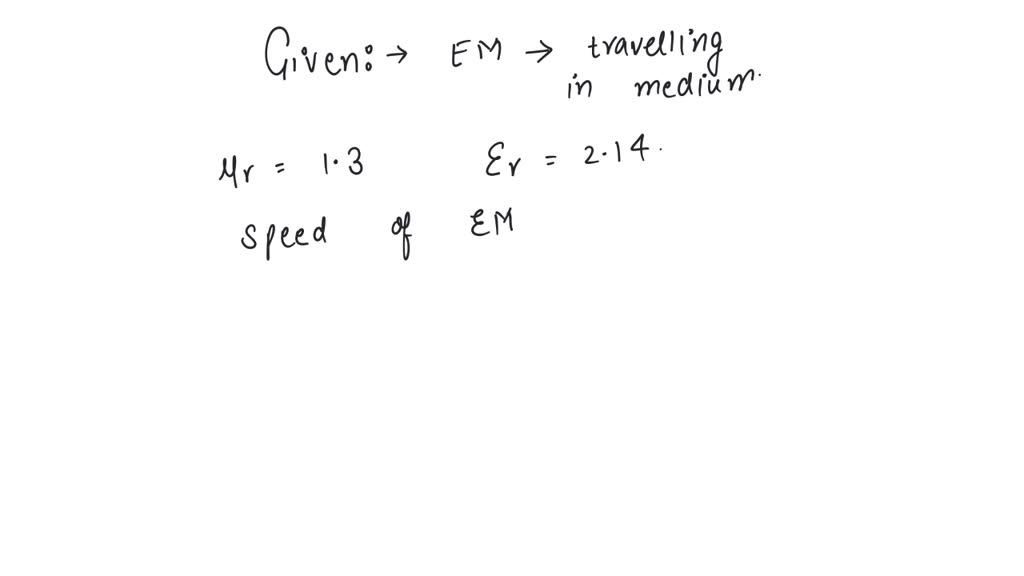 Given:→ EM → travelling
in medium.
μr = 1.3 Er = 2.14.
speed of EM